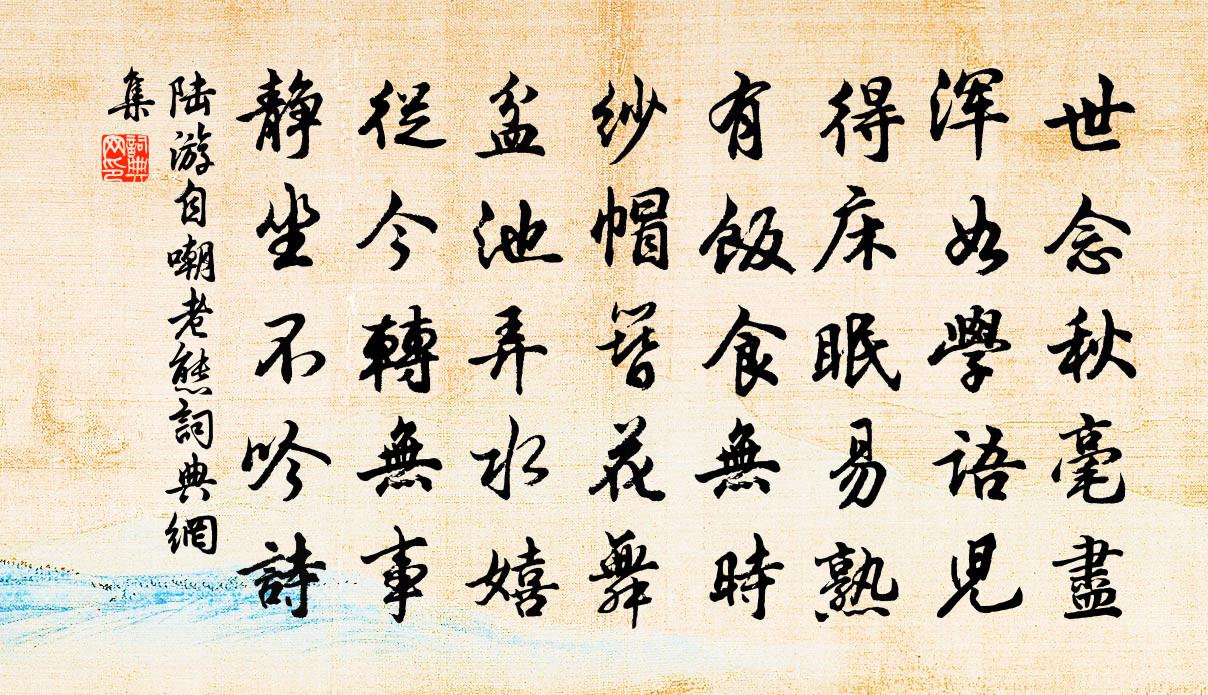 世念秋毫盡
渾如學語兒
得床眠易熟
有飯食無時
紗帽簪花舞
盆池弄水嬉
從今轉無事
静坐不吟詩
陆游自嘲老熊詞典網
集
詞典
网印